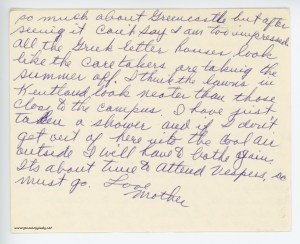 so much about Greencastle but after
seeing it Can't say I am too impressed
All the Greek letter houses look
like the Caretakers are taking the
summer off. I think the lawns in
Kentland look neater than those
close to the campus. I have just
taken a shower and if I don't
get out of here into the cool air
outside I will have to bathe again.
Its about time to Attend Vespers, so
must go. Love
Mother